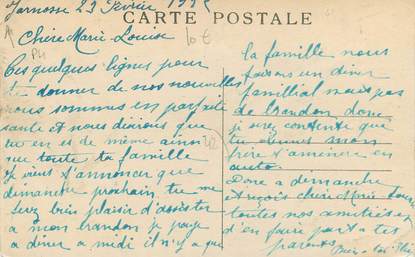 Jarnosse 23 Février
CARTE POSTALE
Chère Marie Louise
Ces quelques lignes pour
te donner de nos nouvelles
nous sommes en parfaite
santé et nous désirons que
tu en es de même ainsi
que toute ta famille
Je viens t'annoncer que
dimanche prochain tu me
feras bien plaisir d'assister
a mon brandon je paye
a diner a midi il n'y a que
la famille nous
faisons un diner
famillial mais pas
de brandon donc
je serez contente que
tu mon
frère t'amènera en
auto.
Donc a dimanche
et reçois chère Marie Louise
toutes nos amitiées
d'en faire part a tes
parents